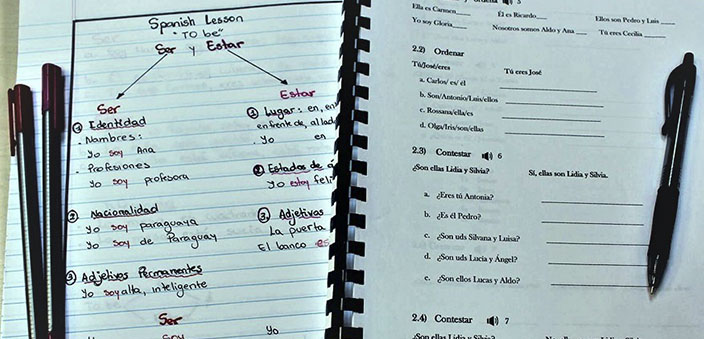 Spanish Lesson
"TO be"
Ser y Estar
Ser
① Identidad
- Nombres:
Yo soy Ana
- Profesiones
Yo soy profesora
② Nacionalidad
Yo soy paraguaya
Yo soy de Paraguay
③ Adjetivos Permanentes
Yo soy alta, inteligente
Ser
Soy
Yo
Estar
① Lugar: en, en
enfrente de, al lad
Yo en
② Estados de á
Yo estoy feli
③ Adjetivos
La puerta
El banco es
Ella es Carmen____
Él es Ricardo____
Ellos son Pedro y Luis____
Yo soy Gloria____
Nosotros somos Aldo y Ana____
Tú eres Cecilia____
2.2) Ordenar
Tú/José/eres
Tú eres José
a. Carlos/ es/ él
b. Son/Antonio/Luis/ellos
c. Rossana/ella/es
d. Olga/Iris/son/ellas
2.3) Contestar 6
¿Son ellas Lidia y Silvia?
Sí, ellas son Lidia y Silvia.
a. ¿Eres tú Antonia?
b. ¿Es él Pedro?
c. ¿Son uds Silvana y Luisa?
d. ¿Son uds Lucía y Ángel?
e. ¿Son ellos Lucas y Aldo?
2.4) Contestar 7
¿Son ellas Lidia y Silvia?